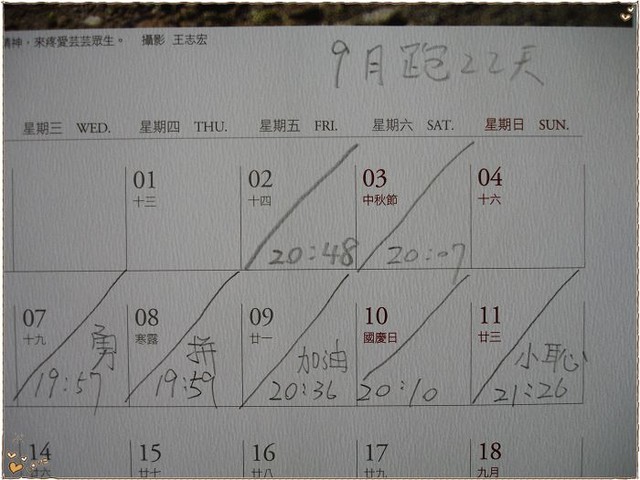 精神，來疼愛芸芸眾生。 攝影 王志宏
9月跑22天
星期三 WED. 星期四 THU. 星期五 FRI. 星期六 SAT. 星期日 SUN.
01 02 03 04
十三 十四 中秋節 十六
20:48 20:07
07 08 09 10 11
十九 寒露 廿一 國慶日 廿三
勇 拼 加油 小恥
19:57 19:59 20:36 20:10 21:26
14 15 16 17 18
廿六 廿七 廿八 廿九 九月